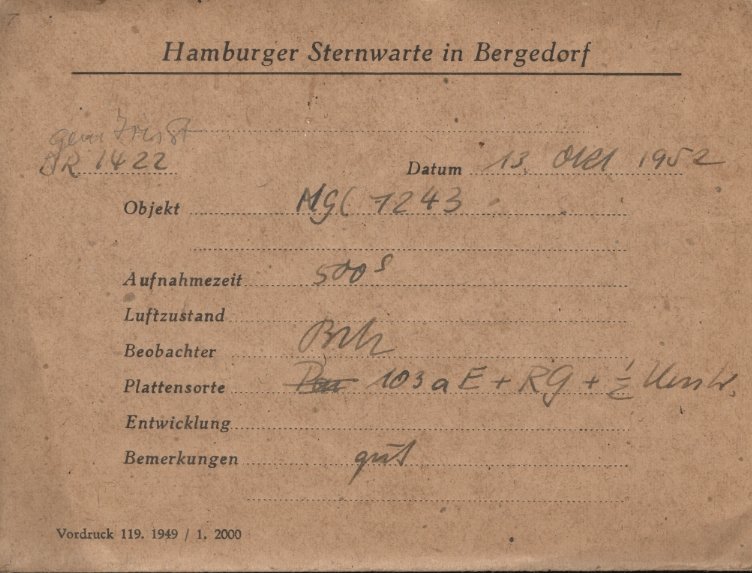 Hamburger Sternwarte in Bergedorf
DR 1422
Datum 13. Okt 1952
Objekt NGC 7243
Aufnahmezeit 500s
Luftzustand
Beobachter
Plattensorte 103aE + RG + 1/2
Entwicklung
Bemerkungen gut
Vordruck 119. 1949 / 1. 2000